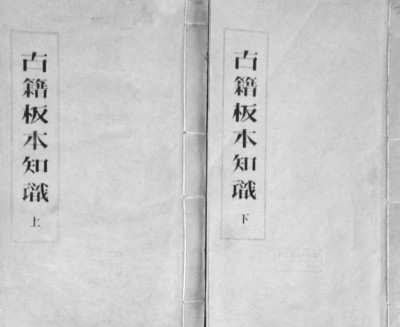 古籍板本知識
上
古籍板本知識
下